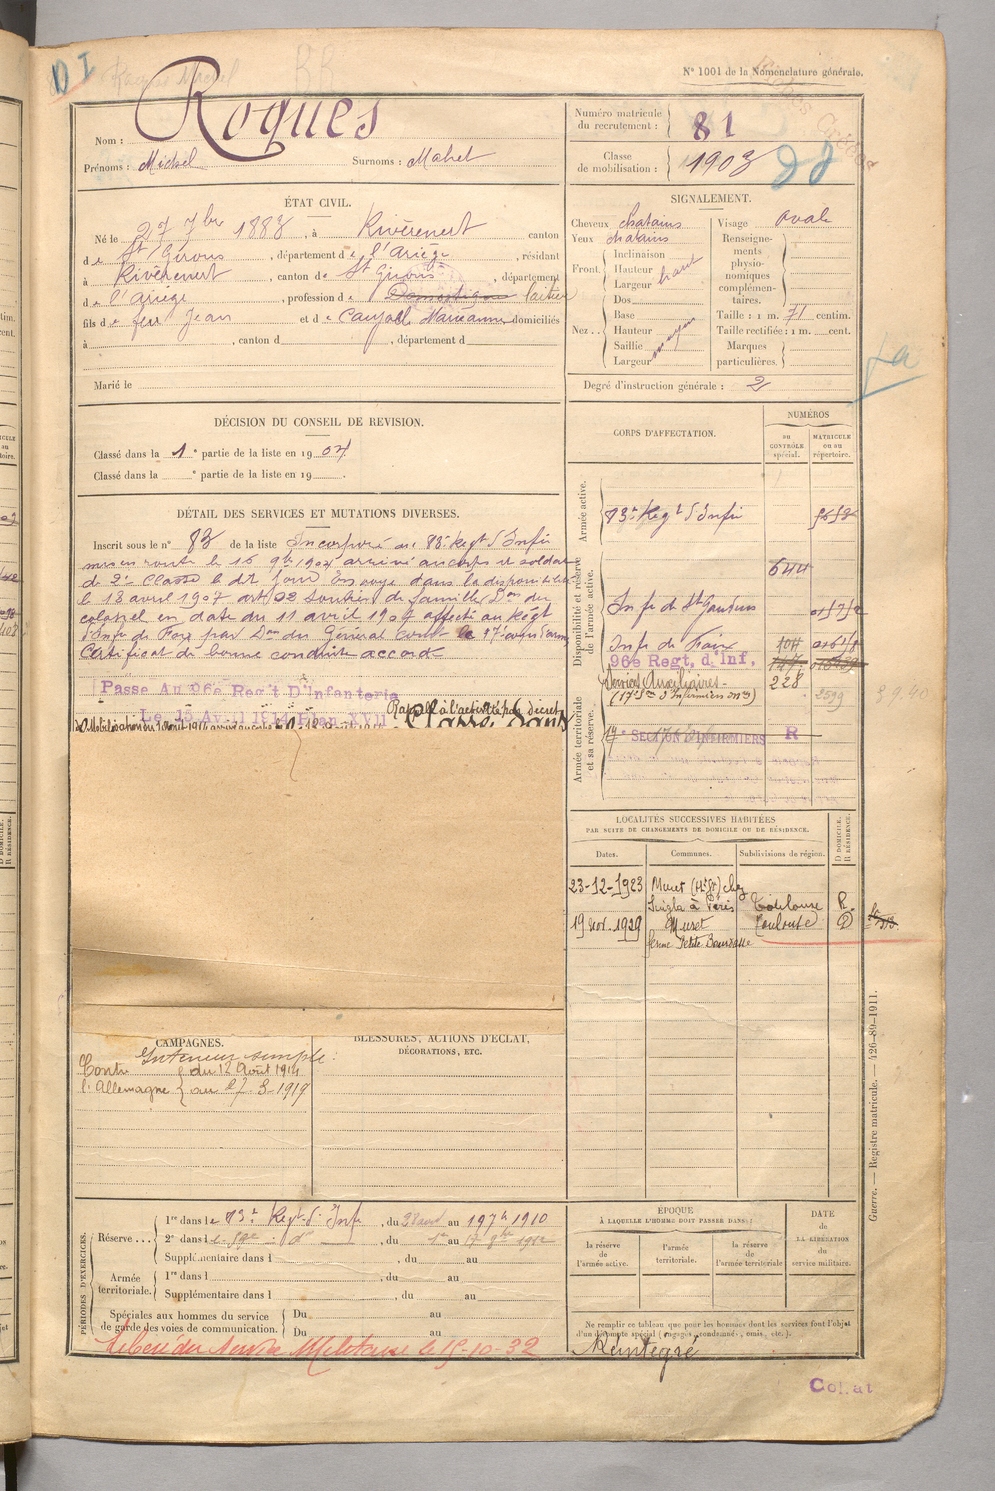 D I
N° 1001 de la Nomenclature générale.
Nom : Roques
Prénoms : Michel Surnoms : Mahet
Numéro matricule du recrutement : 81
Classe de mobilisation : 1903
ÉTAT CIVIL.
Né le 27 7bre 1883, à Rivèrenert canton
de St Girons, département de l'Ariège, résidant
à Rivèrenert, canton de St Girons, département
de l'Ariège, profession de Domestique laitier
fils de feu Jean et de Marianne domiciliés
à , canton d , département d
Marié le
SIGNALEMENT.
Cheveux chatains
Yeux chatains
Front. Inclinaison
Hauteur haut
Largeur
Dos
Nez Base
Hauteur moyen
Saillie
Largeur
Visage ovale
Renseignements physionomiques complémentaires.
Taille : 1 m. 71 centim.
Taille rectifiée : 1 m. cent.
Marques particulières.
Degré d'instruction générale : 2
DÉCISION DU CONSEIL DE REVISION.
Classé dans la 1e partie de la liste en 1904
Classé dans la e partie de la liste en 19 .
CORPS D'AFFECTATION.
NUMÉROS
au CONTRÔLE spécial.
MATRICULE ou au répertoire.
Armée active.
83e Regt d'Infie
Disponibilité et réserve de l'armée active.
644
Inf de St Gaudens
Inf de Foix 104
96e Regt. d'Inf.
Services Auxiliaires 228
(17e Son d'Infirmiers mres) 2599
Armée territoriale et sa réserve.
17e SECTION D'INFIRMIERS R
DÉTAIL DES SERVICES ET MUTATIONS DIVERSES.
Inscrit sous le n° 83 de la liste Incorporé au 83e Regt d'Infie
mis en route le 16 9bre 1904 arrivé au corps et soldat
de 2e classe le dit jour Envoyé dans la disponibilité
le 13 avril 1907 art 22 Soutien de famille Don du
colonel en date du 11 avril 1907 affecté au Régt
d'Infie de Foix par Don du Général Comt le 17e corps d'armée
Certificat de bonne conduite accordé
Passé Au 96e Reg't D'Infanterie
Le 15 Avril 1914 Plan XVII
Rappelé à l'activité par décret
Mobilisation du 1 Août 1914
Classé Sans
LOCALITÉS SUCCESSIVES HABITÉES
PAR SUITE DE CHANGEMENTS DE DOMICILE OU DE RÉSIDENCE.
Dates. Communes. Subdivisions de région. D DOMICILE. R RÉSIDENCE.
23-12-1923 Muret (Hte Gne) chez
Toulouse R.
19 nov. 1929 Muret Toulouse D
ferme Petite Bourdasse
CAMPAGNES.
Intérieur simple :
Contre du 12 Août 1914
l'Allemagne au 27-3-1919
BLESSURES, ACTIONS D'ÉCLAT,
DÉCORATIONS, ETC.
PÉRIODES D'EXERCICES.
Réserve ... 1re dans le 83e Regt d'Infie, du au 1910
2e dans le , du 1er au 17 9bre 1912
Supplémentaire dans l , du au
Armée territoriale. 1re dans l , du au
Supplémentaire dans l , du au
Spéciales aux hommes du service de garde des voies de communication. Du au
Du au
Libéré du Service Militaire le 15-10-32
ÉPOQUE
À LAQUELLE L'HOMME DOIT PASSER DANS :
la réserve de l'armée active.
l'armée territoriale.
la réserve de l'armée territoriale
DATE de LA LIBÉRATION du service militaire.
Ne remplir ce tableau que pour les hommes dont les services font l'objet
d'un décompte spécial (engagés, condamnés, omis, etc.).
Réintégré
Col. at
Guerre. — Registre matricule. — 426-89-1911.